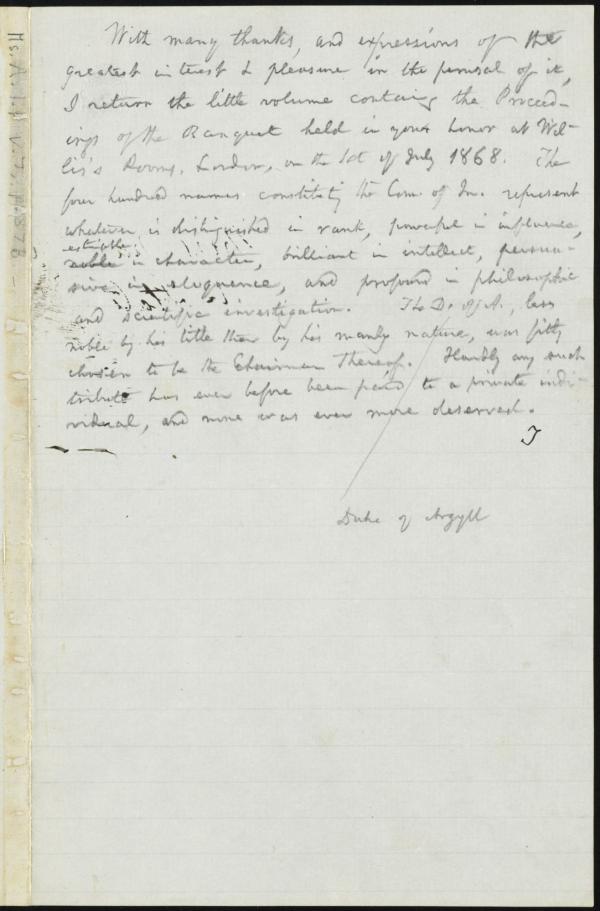 With many thanks, and expressions of the
greatest interest & pleasure in the perusal of it,
I return the little volume containg the Proceed-
ings of the Banquet held in your honor at Wil-
lis's Rooms, London, on the 1st of July 1868. The
four hundred names constituting the Com. of In. represent
whatever is distinguished in rank, powerful in influence,
estimable
noble in character, brilliant in intellect, persua-
sive in eloquence, and profound in philosophic
and scientific investigation. The D. of A., less
noble by his title than by his manly nature, was fitly
chosen to be the Chairman thereof. Hardly any such
tribute has ever before been paid to a private indi-
vidual, and none was ever more deserved.
Duke of Argyll